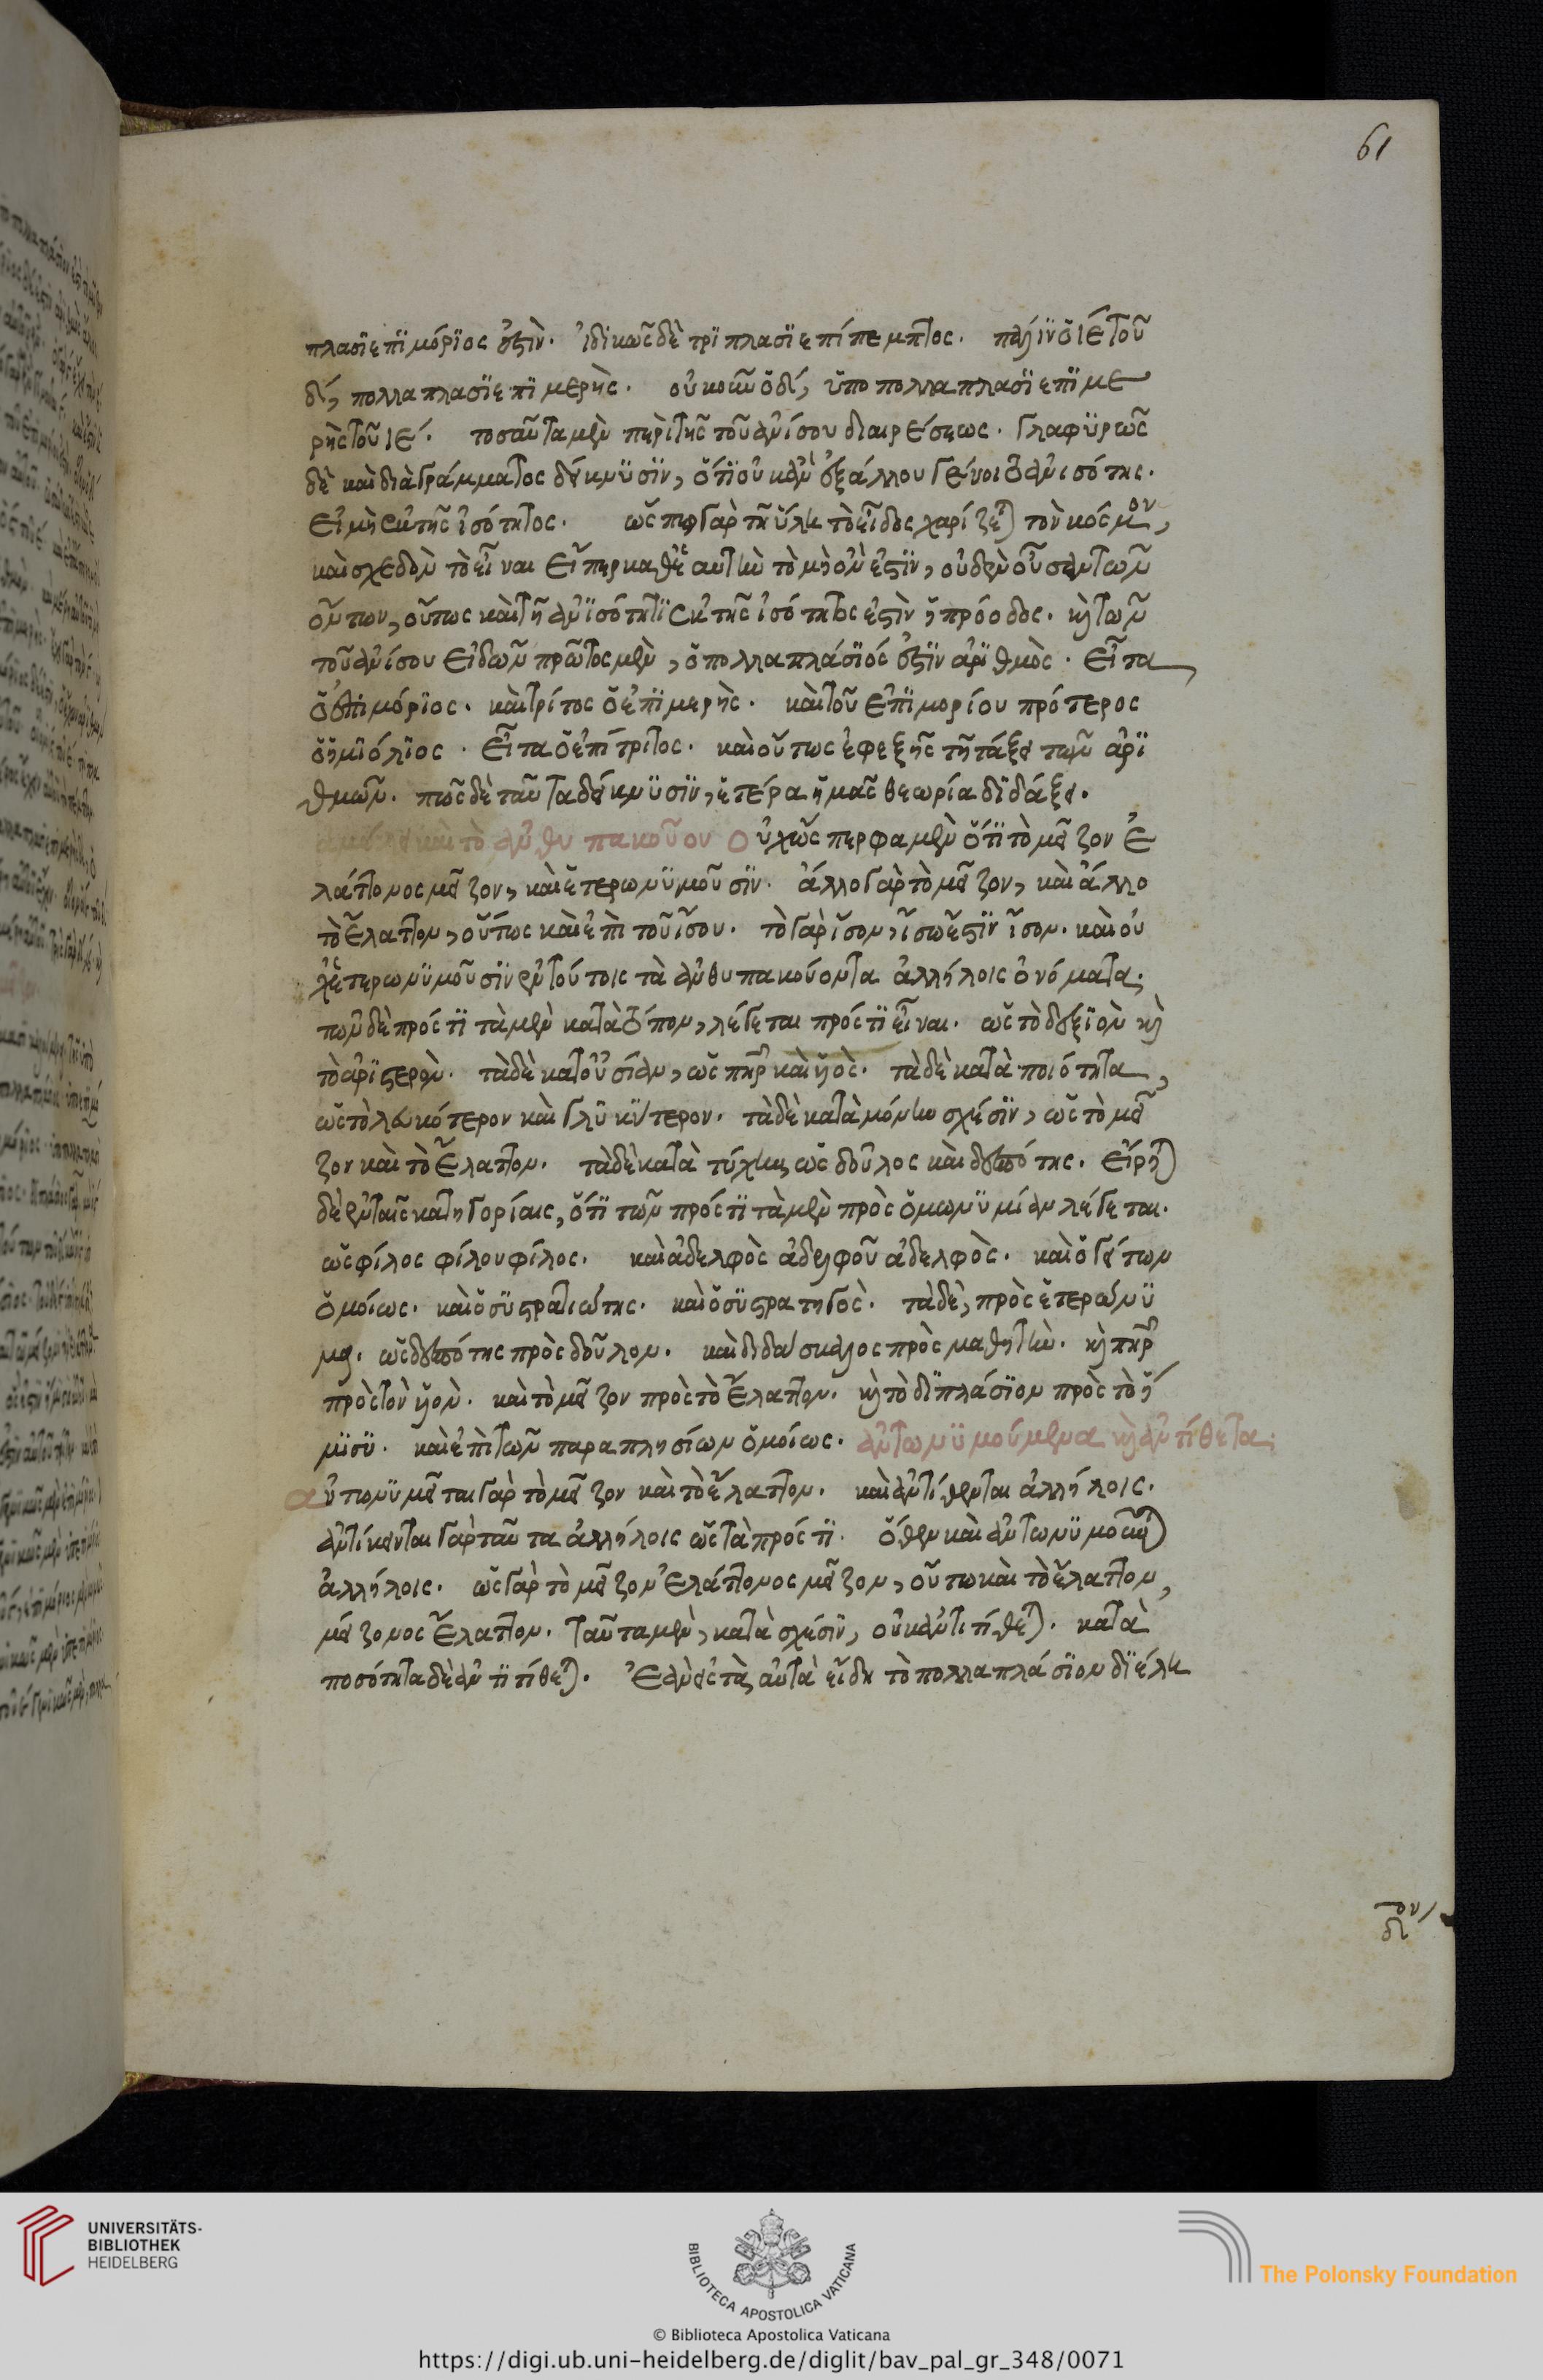 61
πλασιεπιμόριος ἐστὶν. ἰδικῶς δὲ τριπλασιεπίπεμπτος. πάλιν ὁ ιε τοῦ
δ, πολλαπλασιεπιμερὴς. οὐκοῦν ὁ δ, ὑποπολλαπλασιεπιμε
ρὴς τοῦ ιε. τοσαῦτα μὲν περὶ τῆς τοῦ ἀνίσου διαιρέσεως. γλαφυρῶς
δὲ καὶ διὰ γράμματος δείκνυσιν, ὅτι οὐκ ἂν ἐξ ἄλλου γένοιτο ἀνισότης.
εἰ μὴ ἐκ τῆς ἰσότητος. ὥσπερ γὰρ τῇ ὕλῃ τὸ εἶδος χαρίζεται τὸν κόσμον,
καὶ σχεδὸν τὸ εἶναι εἴπερ καθ' ἑαυτὴν τὸ μὴ ὂν ἐστὶν, οὐδὲν οὖσα τῶν
ὄντων, οὕτως καὶ τῇ ἀνισότητι ἐκ τῆς ἰσότητος ἐστὶν ἡ πρόοδος. καὶ τῶν
τοῦ ἀνίσου εἰδῶν πρῶτος μὲν, ὁ πολλαπλάσιός ἐστιν ἀριθμὸς. εἶτα
ὁ ἐπιμόριος. καὶ τρίτος ὁ ἐπιμερὴς. καὶ τοῦ ἐπιμορίου πρότερος
ὁ ἡμιόλιος. εἶτα ὁ ἐπίτριτος. καὶ οὕτως ἐφεξῆς τῇ τάξει τῶν ἀρι
θμῶν. πῶς δὲ ταῦτα δείκνυσιν, ἑτέρα ἡμᾶς θεωρία διδάξει.
καὶ τὸ ἀνθυπακοῦον Οὐχ ὥσπερ φαμὲν ὅτι τὸ μεῖζον ἐ
λάττονος μεῖζον, καὶ ἑτερωνυμοῦσιν. ἄλλο γὰρ τὸ μεῖζον, καὶ ἄλλο
τὸ ἔλαττον, οὕτως καὶ ἐπὶ τοῦ ἴσου. τὸ γὰρ ἴσον, ἴσῳ ἐστὶν ἴσον. καὶ οὐ
χ' ἑτερωνυμοῦσιν ἐν τούτοις τὰ ἀνθυπακούοντα ἀλλήλοις ὀνόματα.
τῶν δὲ πρός τι τὰ μὲν κατὰ τόπον, λέγεται πρός τι εἶναι. ὡς τὸ δεξιὸν καὶ
τὸ ἀριστερὸν. τὰ δὲ κατ' οὐσίαν, ὡς πατὴρ καὶ υἱὸς. τὰ δὲ κατὰ ποιότητα,
ὡς τὸ λευκότερον καὶ γλυκύτερον. τὰ δὲ κατὰ μόνην σχέσιν, ὡς τὸ μεῖ
ζον καὶ τὸ ἔλαττον. τὰ δὲ κατὰ τύχην ὡς δοῦλος καὶ δεσπότης. εἴρηται
δὲ ἐν ταῖς κατηγορίαις, ὅτι τῶν πρός τι τὰ μὲν πρὸς ὁμωνυμίαν λέγεται.
ὡς φίλος φίλου φίλος. καὶ ἀδελφὸς ἀδελφοῦ ἀδελφὸς. καὶ ὁ γείτων
ὁμοίως. καὶ ὁ συστρατιώτης. καὶ ὁ συστρατηγὸς. τὰ δὲ, πρὸς ἑτερώνυ
μα. ὡς δεσπότης πρὸς δοῦλον. καὶ διδάσκαλος πρὸς μαθητὴν. καὶ πατὴρ
πρὸς τὸν υἱὸν. καὶ τὸ μεῖζον πρὸς τὸ ἔλαττον. καὶ τὸ διπλάσιον πρὸς τὸ ἥ
μισυ. καὶ ἐπὶ τῶν παραπλησίων ὁμοίως. ἀντωνυμούμενα καὶ ἀντίθετα.
ἀντωνυμεῖται γὰρ τὸ μεῖζον καὶ τὸ ἔλαττον. καὶ ἀντίθενται ἀλλήλοις.
ἀντίκεινται γὰρ ταῦτα ἀλλήλοις ὡς τὰ πρός τι. ὅθεν καὶ ἀντωνυμοῦνται
ἀλλήλοις. ὡς γὰρ τὸ μεῖζον ἐλάττονος μεῖζον, οὕτω καὶ τὸ ἔλαττον,
μείζονος ἔλαττον. ταῦτα μὲν, κατὰ σχέσιν, οὐκ ἀντιτίθεται. κατὰ
ποσότητα δὲ ἀντιτίθεται. Ἐὰν εἰς τὰ αὐτὰ εἴδη τὸ πολλαπλάσιον διέλῃ
UNIVERSITÄTS-
BIBLIOTHEK
HEIDELBERG
BIBLIOTECA APOSTOLICA VATICANA
The Polonsky Foundation
© Biblioteca Apostolica Vaticana
https://digi.ub.uni-heidelberg.de/diglit/bav_pal_gr_348/0071